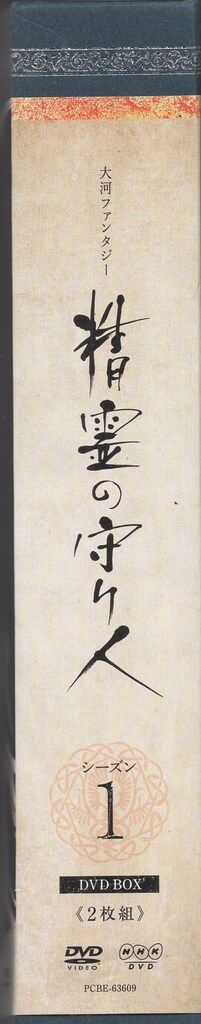 大河ファンタジー
精霊の守り人
シーズン
1
DVD BOX
《2枚組》
DVD
VIDEO
NHK
DVD
PCBE-63609